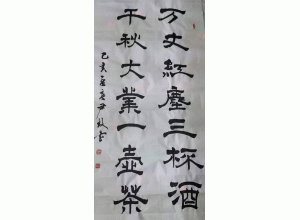 万丈红尘三杯酒
千秋大业一壶茶
己亥